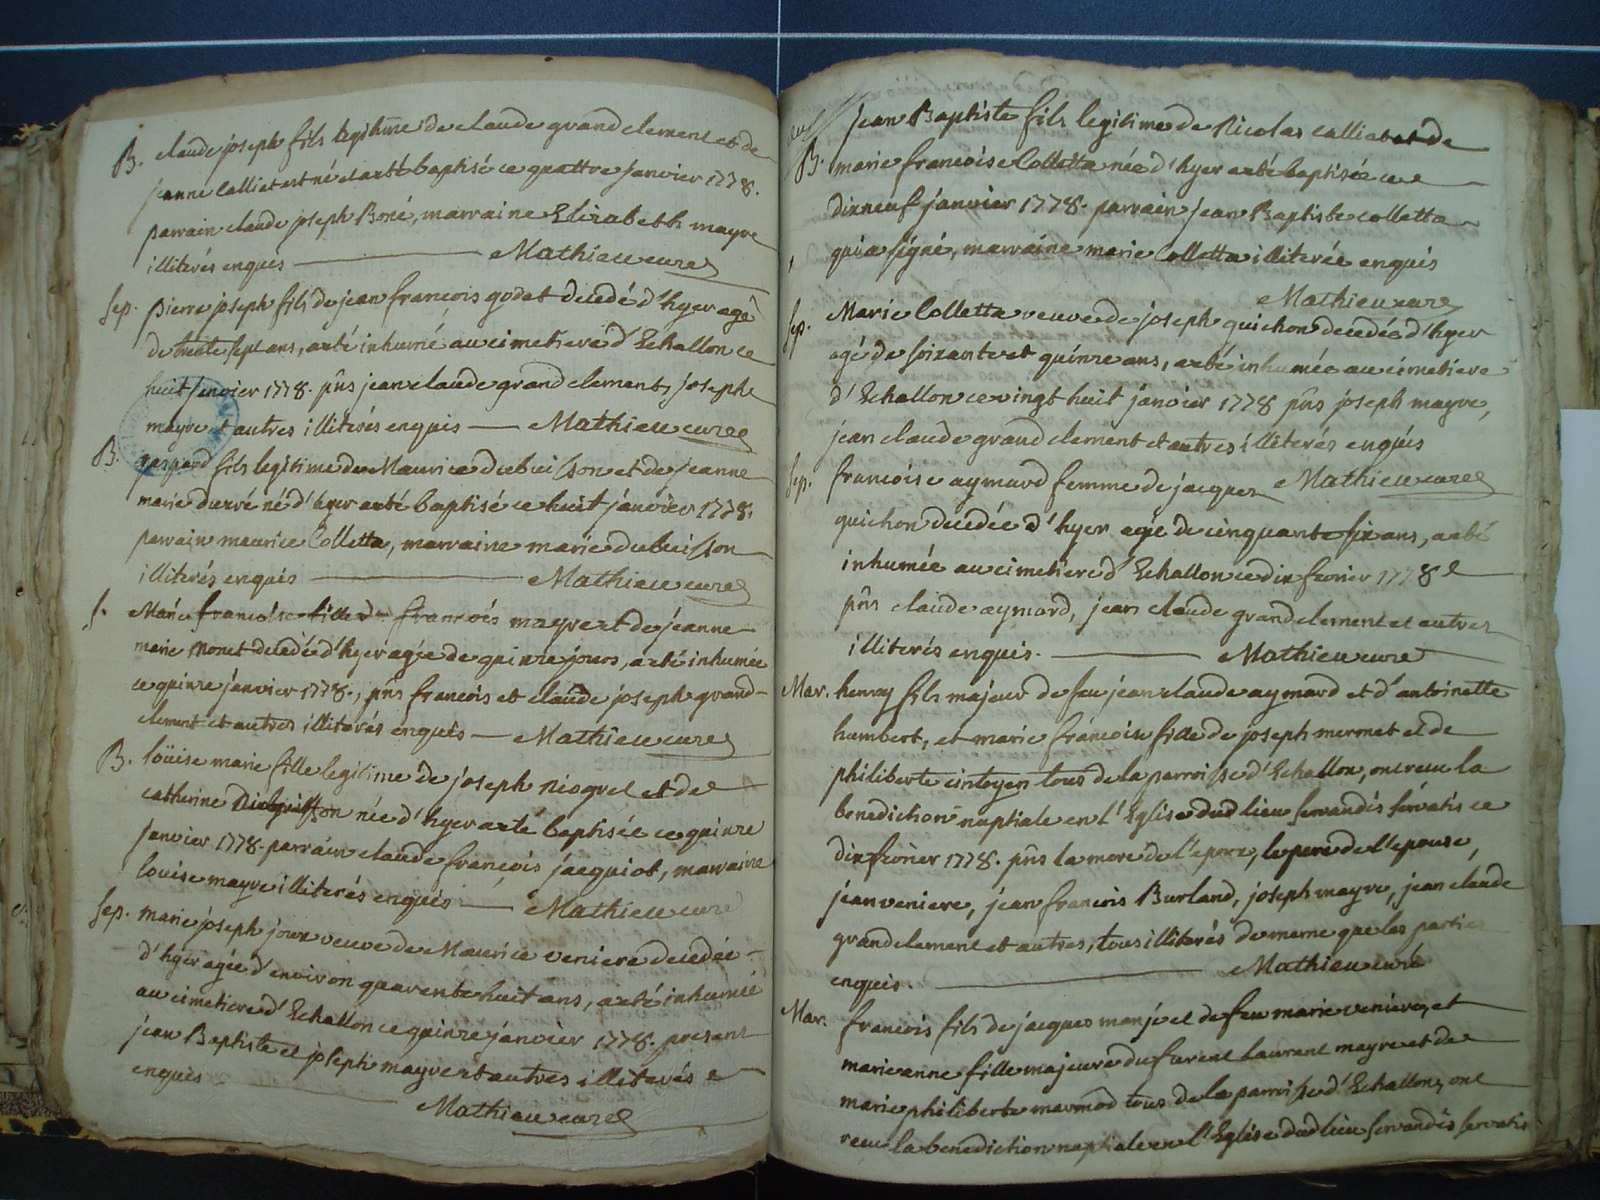 B. claude joseph fils legitime de claude grand clement et de
jeanne Calliat est né et a eté baptisé ce quattre janvier 1778.
parrain claude joseph Boné, marraine Elizabeth mayre
illiterés enquis Mathieu curé
Sep. pierre joseph fils de jean francois godet decedé d'hyer agé
de trente sept ans, a eté inhumé au cimetiere d'Echallon ce
huit janvier 1778. pñs jean claude grand clement, joseph
mayre et autres illiterés enquis Mathieu curé
B. gaspard fils legitime de Maurice dubuisson et de jeanne
marie durvé né d'hyer a eté baptisé ce huit janvier 1778.
parrain maurice Colletta, marraine marie dubuisson
illiterés enquis Mathieu curé
S. Marie francoise fille de francois mayre et de jeanne
marie monet decedée d'hyer agée de quinze jours, a eté inhumée
ce quinze janvier 1778., pñs francois et claude joseph grand-
clement et autres illiterés enquis Mathieu curé
B. loüise marie fille legitime de joseph niogret et de
catherine née d'hyer a eté baptisée ce quinze
janvier 1778. parrain claude francois jacquiot, marraine
louise mayre illiterés enquis Mathieu curé
Sep. marie joseph joux veuve de Maurice veniere decedée
d'hyer agée d'environ quarente huit ans, a eté inhumée
au cimetiere d'Echallon ce quinze janvier 1778. presens
jean Baptiste et joseph mayre et autres illiterés
enquis
Mathieu curé
jean Baptiste fils legitime de Nicolas calliat et de
B. marie francoise Colletta née d'hyer a eté baptisée ce
dix neuf janvier 1778. parrain jean Baptiste colletta
qui a signé, marraine marie Colletta illiterée enquis
Mathieu curé
Sep. Marie Colletta veuve de joseph guichon decedée d'hyer
agé de soixante et quinze ans, a eté inhumée au cimetiere
d'Echallon ce vingt huit janvier 1778 pñs joseph mayre,
jean claude grand clement et autres illiterés enquis
Sep. francoise aymard femme de jacques Mathieu curé
guichon decedée d'hyer agée de cinquante six ans, a eté
inhumée au cimetiere d'Echallon ce dix fevrier 1778
pñs claude aymard, jean claude grand clement et autres
illiterés enquis. Mathieu curé
Mar. henry fils majeur de feu jean claude aymard et d'antoinette
humbert, et marie francoise fille de joseph mermet et de
philiberte tous de la parroisse d'Echallon, ont recu la
benediction nuptiale en l'Eglise dud lieu servandis servatis ce
dix fevrier 1778. pñs la mere de l'epoux, le pere de l'epouse,
jean veniere, jean francois Burland, joseph mayre, jean claude
grand clement et autres, tous illiterés de meme que les parties
enquis Mathieu curé
Mar. francois fils de jacques et de feu marie veniere, et
marie anne fille majeure du furent laurent mayre et de
marie philiberte marmod tous de la parroisse d'Echallon, ont
recu la benediction nuptiale en l'Eglise dud lieu servandis servatis